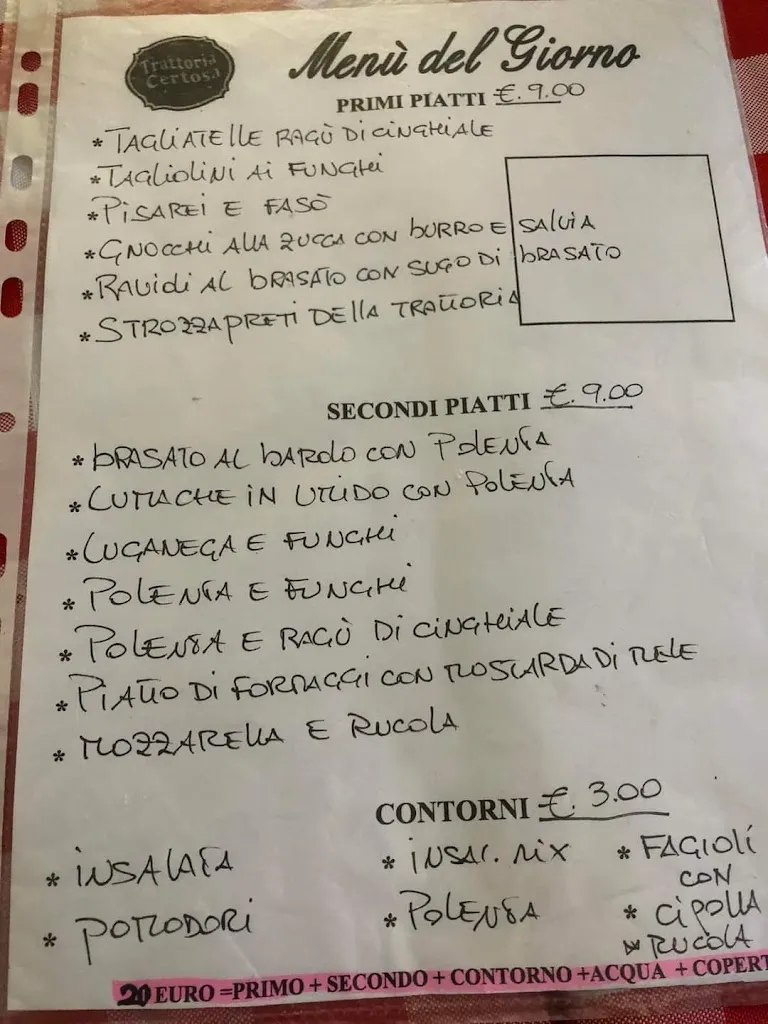 Trattoria
Certosa
Menù del Giorno
PRIMI PIATTI €. 9.00
* TAGLIATELLE RAGÙ DI CINGHIALE
* TAGLIOLINI AI FUNGHI
* PISAREI E FASÒ
* GNOCCHI ALLA ZUCCA CON BURRO E SALVIA
* RAVIOLI AL BRASATO CON SUGO DI BRASATO
* STROZZAPRETI DELLA TRATTORIA
SECONDI PIATTI €. 9.00
* BRASATO AL BAROLO CON POLENTA
* LUMACHE IN UMIDO CON POLENTA
* LUGANEGA E FUNGHI
* POLENTA E FUNGHI
* POLENTA E RAGÙ DI CINGHIALE
* PIATTO DI FORMAGGI CON MOSTARDA DI MELE
* MOZZARELLA E RUCOLA
CONTORNI €. 3.00
* INSALATA * INSAL. MIX * FAGIOLI
CON
* POMODORI * POLENTA * CIPOLLA
* RUCOLA
20 EURO =PRIMO + SECONDO + CONTORNO +ACQUA + COPERT